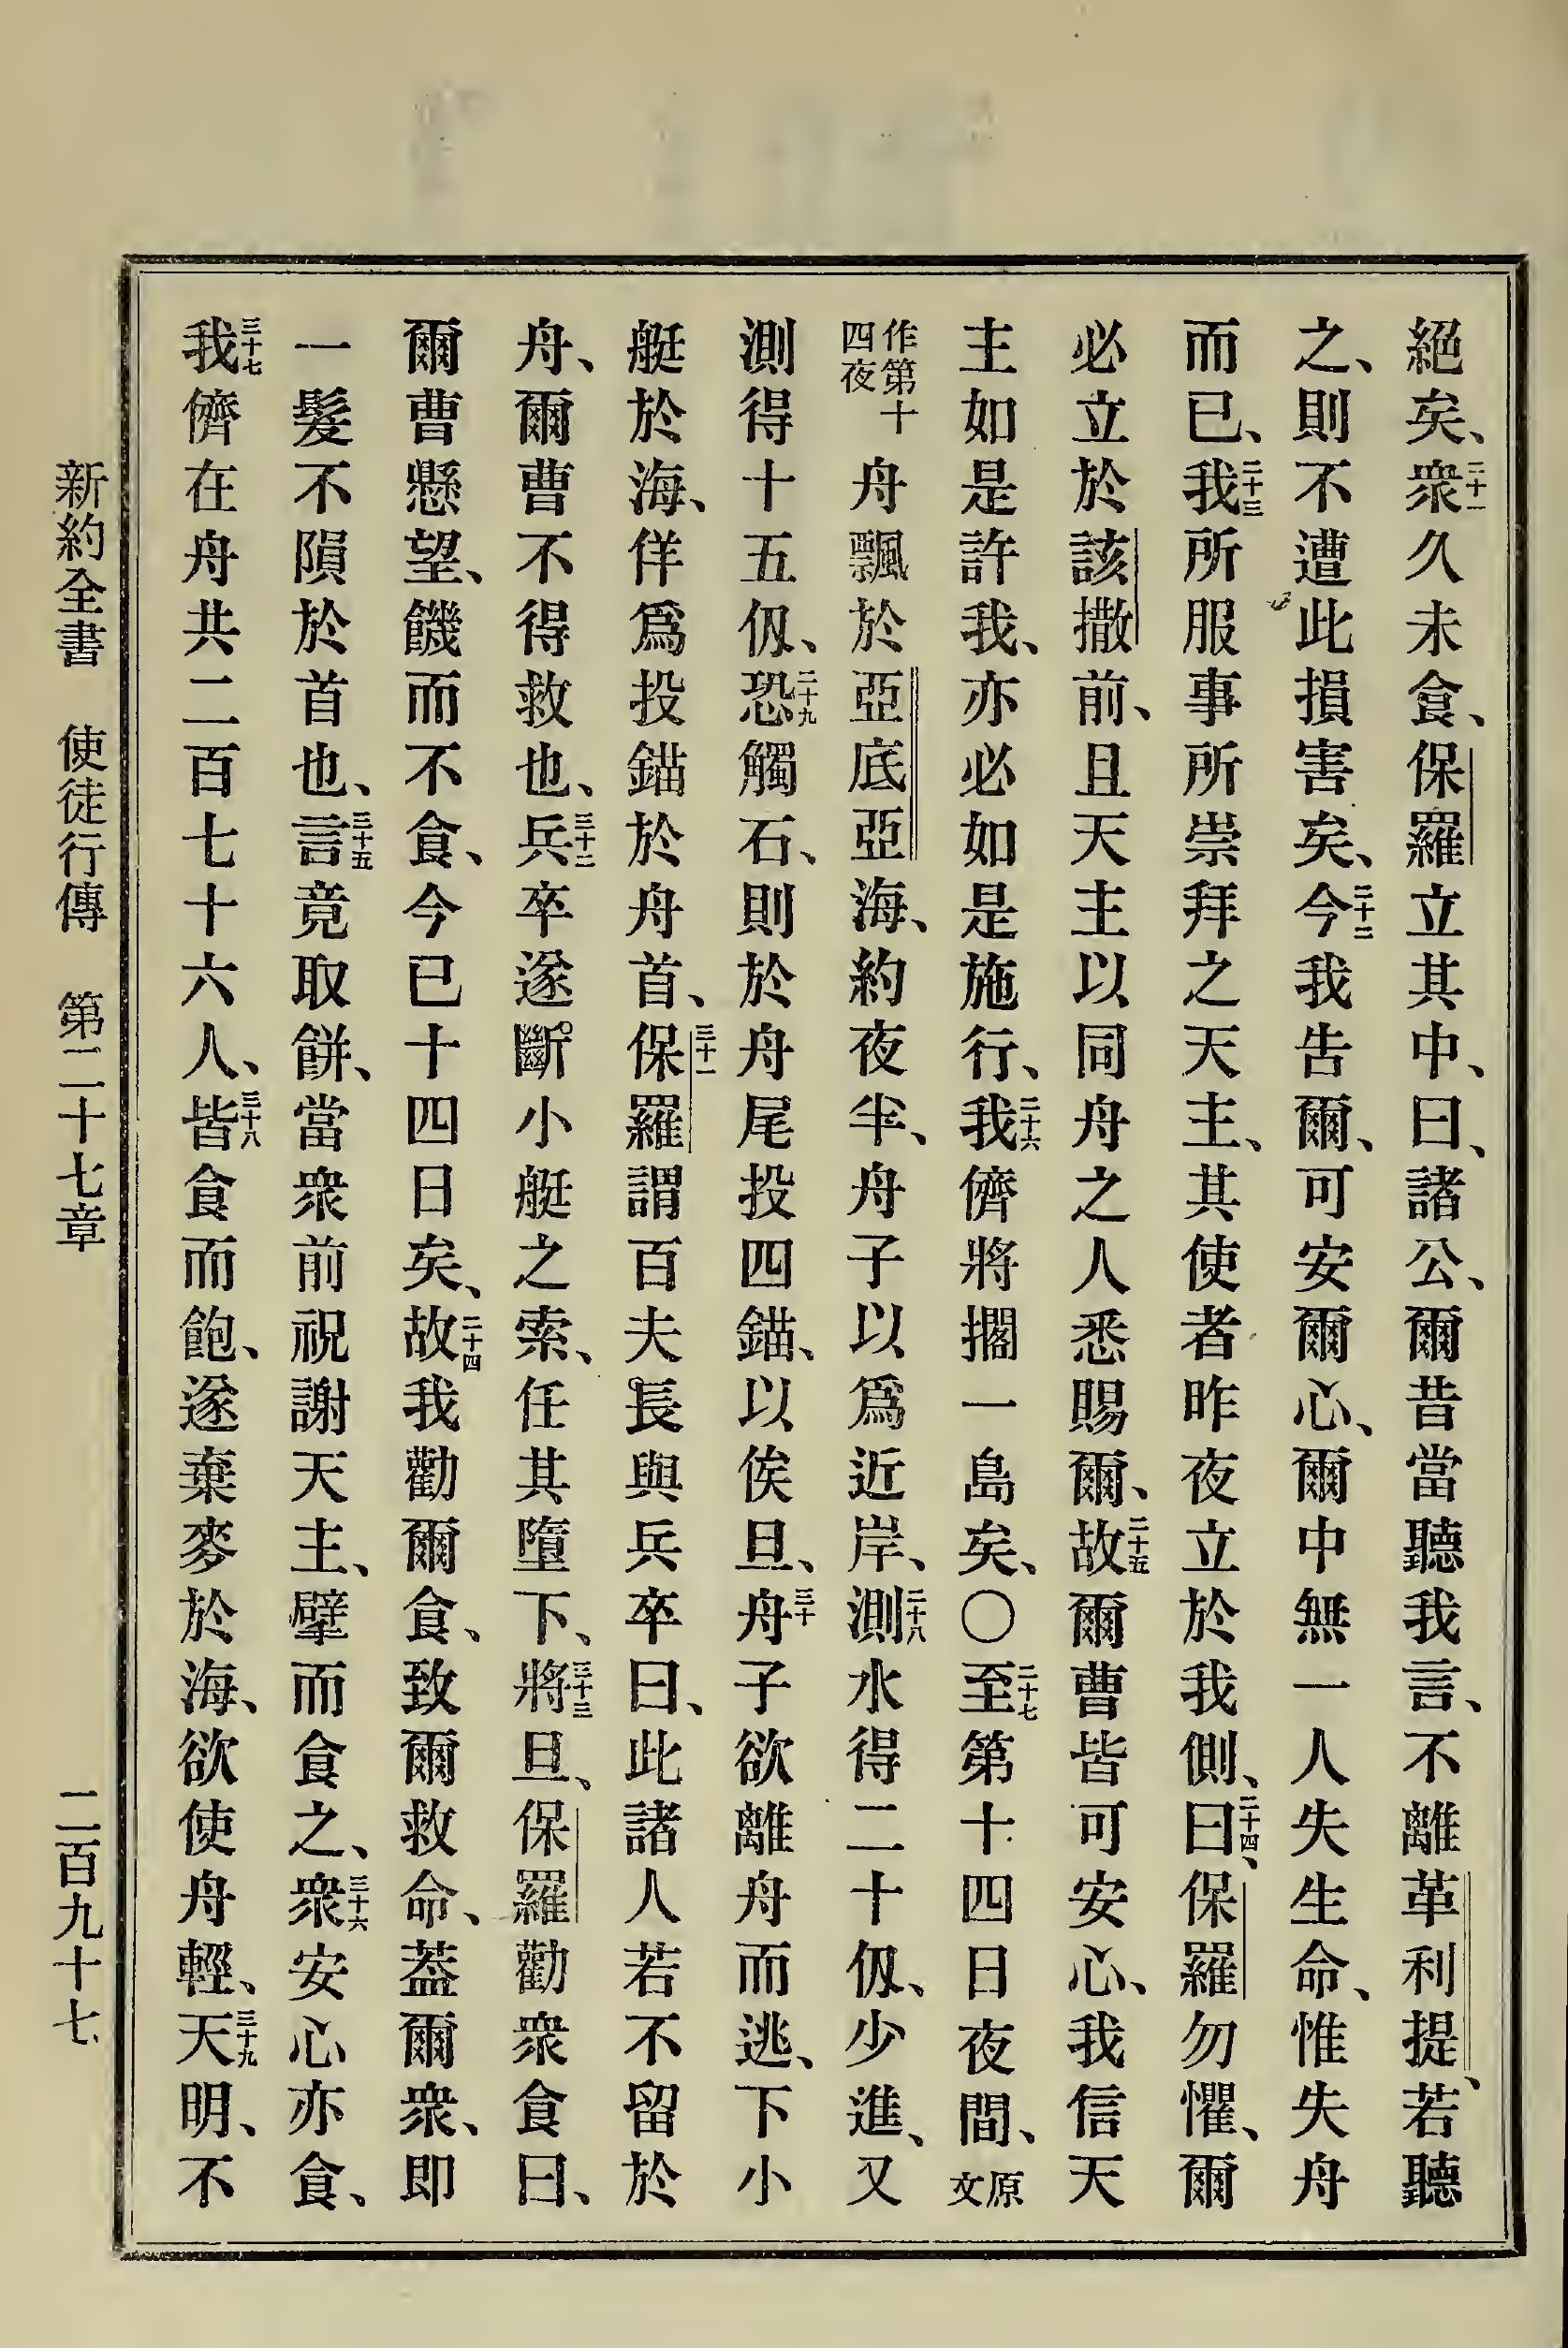 絕矣、二十一衆久未食、保羅立其中、曰、諸公、爾昔當聽我言、不離革利提、若聽
之、則不遭此損害矣、二十二今我告爾、可安爾心、爾中無一人失生命、惟失舟
而已、二十三我所服事所崇拜之天主、其使者昨夜立於我側、二十四曰、保羅勿懼、爾
必立於該撒前、且天主以同舟之人悉賜爾、二十五故爾曹皆可安心、我信天
主如是許我、亦必如是施行、二十六我儕將擱一島矣、〇二十七至第十四日夜間、原文
作第十四夜舟飄於亞底亞海、約夜半、舟子以爲近岸、二十八測水得二十仭、少進、又
測得十五仭、二十九恐觸石、則於舟尾投四錨、以俟旦、三十舟子欲離舟而逃、下小
艇於海、佯爲投錨於舟首、三十一保羅謂百夫長與兵卒曰、此諸人若不留於
舟、爾曹不得救也、三十二兵卒遂斷小艇之索、任其墮下、三十三將旦、保羅勸衆食曰、
爾曹懸望、饑而不食、今已十四日矣、二十四故我勸爾食、致爾救命、葢爾衆、即
一髮不隕於首也、三十五言竟取餅、當衆前祝謝天主、擘而食之、三十六衆安心亦食、
三十七我儕在舟共二百七十六人、三十八皆食而飽、遂棄麥於海、欲使舟輕、三十九天明、不
新約全書　使徒行傳　第二十七章　二百九十七